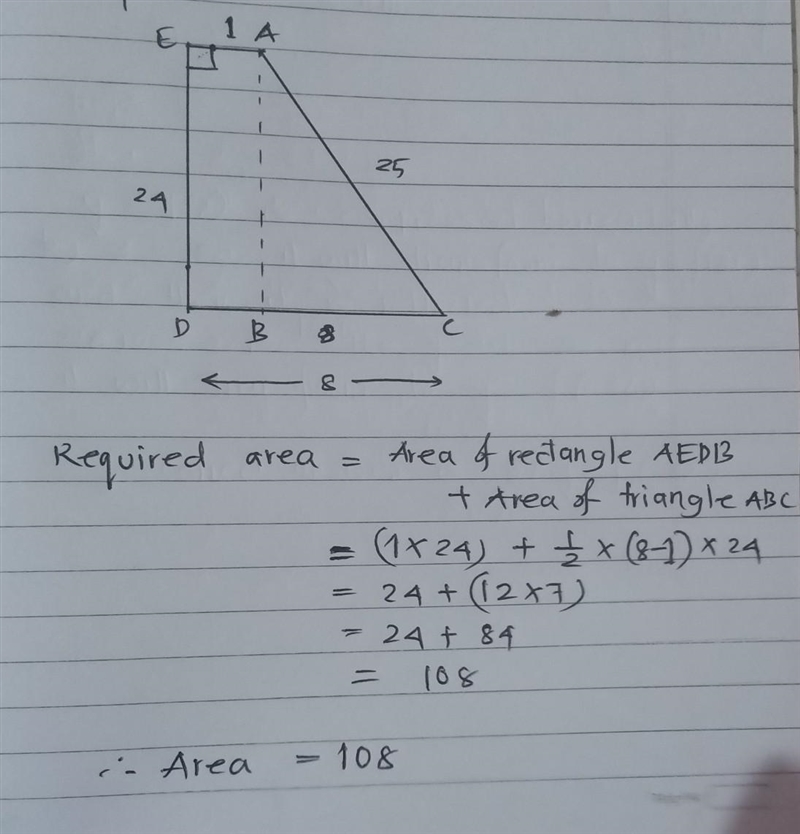 E 1 A
25
24
D B 8 C
8
Required area = Area of rectangle AEDB
+ Area of triangle ABC
= (1 × 24) + 1/2 × (8-1) × 24
= 24 + (12 × 7)
= 24 + 84
= 108
∴ Area = 108